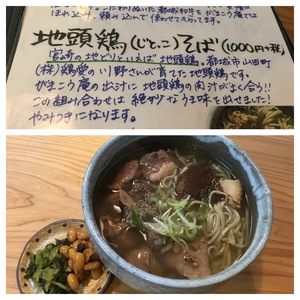 ほれ込み、頼み込んで使わせてもらってます。
地頭鶏(じとっこ)そば(1000円+税)
宮崎の地どりといえば地頭鶏。都城市山田町
(株)鶏愛の川野さんが育てた地頭鶏です。
がまこう庵の出汁に地頭鶏の肉汁がよく合う!!
この組み合わせは絶妙なうま味を出せました!
やみつきになります。